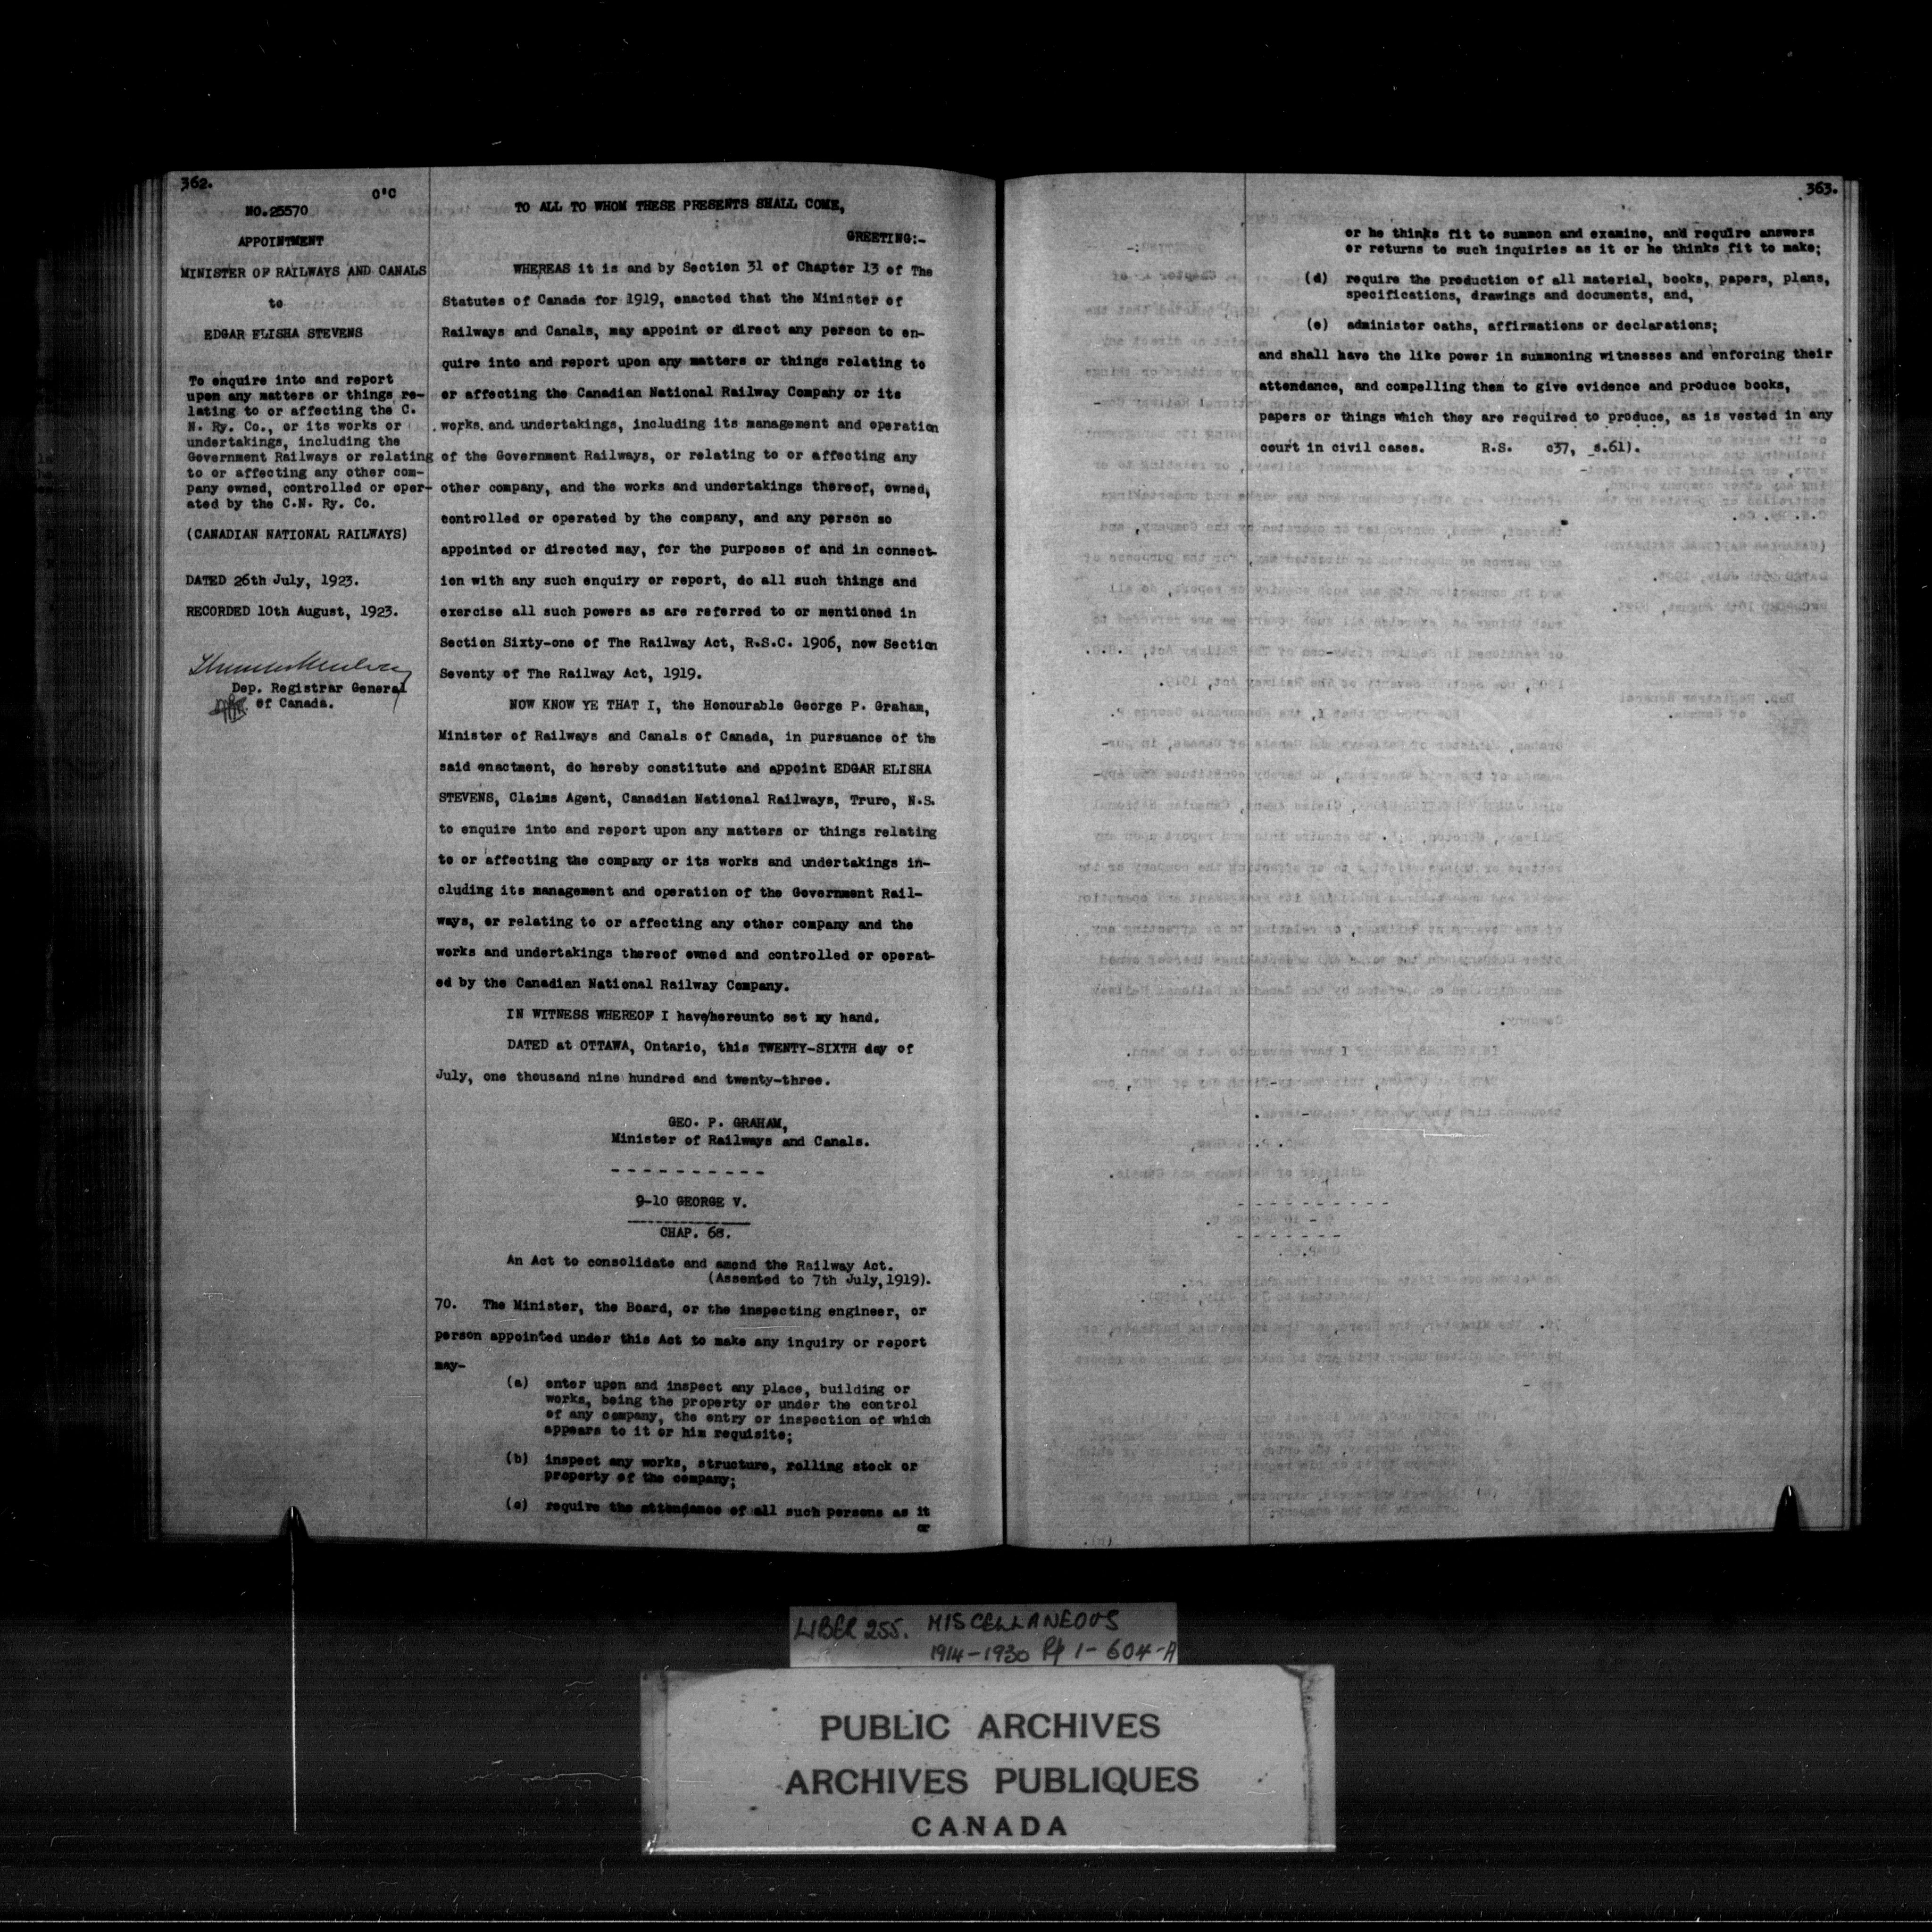 362.
O'C
NO.25570
APPOINTMENT
MINISTER OF RAILWAYS AND CANALS
to
EDGAR ELISHA STEVENS
To enquire into and report
upon any matters or things re-
lating to or affecting the C.
N. Ry. Co., or its works or
undertakings, including the
Government Railways or relating
to or affecting any other com-
pany owned, controlled or oper-
ated by the C.N. Ry. Co.
(CANADIAN NATIONAL RAILWAYS)
DATED 26th July, 1923.
RECORDED 10th August, 1923.
Dep. Registrar General
of Canada.
TO ALL TO WHOM THESE PRESENTS SHALL COME,
GREETING:-
WHEREAS it is and by Section 31 of Chapter 13 of The
Statutes of Canada for 1919, enacted that the Minister of
Railways and Canals, may appoint or direct any person to en-
quire into and report upon any matters or things relating to
or affecting the Canadian National Railway Company or its
works and undertakings, including its management and operation
of the Government Railways, or relating to or affecting any
other company, and the works and undertakings thereof, owned,
controlled or operated by the company, and any person so
appointed or directed may, for the purposes of and in connect-
ion with any such enquiry or report, do all such things and
exercise all such powers as are referred to or mentioned in
Section Sixty-one of The Railway Act, R.S.C. 1906, now Section
Seventy of The Railway Act, 1919.
NOW KNOW YE THAT I, the Honourable George P. Graham,
Minister of Railways and Canals of Canada, in pursuance of the
said enactment, do hereby constitute and appoint EDGAR ELISHA
STEVENS, Claims Agent, Canadian National Railways, Truro, N.S.
to enquire into and report upon any matters or things relating
to or affecting the company or its works and undertakings in-
cluding its management and operation of the Government Rail-
ways, or relating to or affecting any other company and the
works and undertakings thereof owned and controlled or operat-
ed by the Canadian National Railway Company.
IN WITNESS WHEREOF I have/hereunto set my hand.
DATED at OTTAWA, Ontario, this TWENTY-SIXTH day of
July, one thousand nine hundred and twenty-three.
GEO. P. GRAHAM,
Minister of Railways and Canals.
----------
9-10 GEORGE V.
CHAP. 68.
An Act to consolidate and amend the Railway Act.
(Assented to 7th July, 1919).
70. The Minister, the Board, or the inspecting engineer, or
person appointed under this Act to make any inquiry or report
may-
(a) enter upon and inspect any place, building or
works, being the property or under the control
of any company, the entry or inspection of which
appears to it or him requisite;
(b) inspect any works, structure, rolling stock or
property of the company;
(c) require the attendance of all such persons as it
or
363.
or he thinks fit to summon and examine, and require answers
or returns to such inquiries as it or he thinks fit to make;
(d) require the production of all material, books, papers, plans,
specifications, drawings and documents, and,
(e) administer oaths, affirmations or declarations;
and shall have the like power in summoning witnesses and enforcing their
attendance, and compelling them to give evidence and produce books,
papers or things which they are required to produce, as is vested in any
court in civil cases. R.S. c37, s.61).
LIBER 255. MISCELLANEOUS
1914-1930 Pp 1-604-A
PUBLIC ARCHIVES
ARCHIVES PUBLIQUES
CANADA